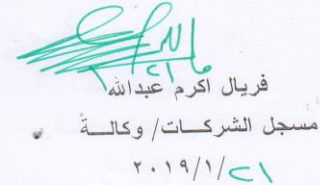 فريال اكرم عبدالله
مسجل الشركات/ وكالة
٢٠١٩/١/٢١